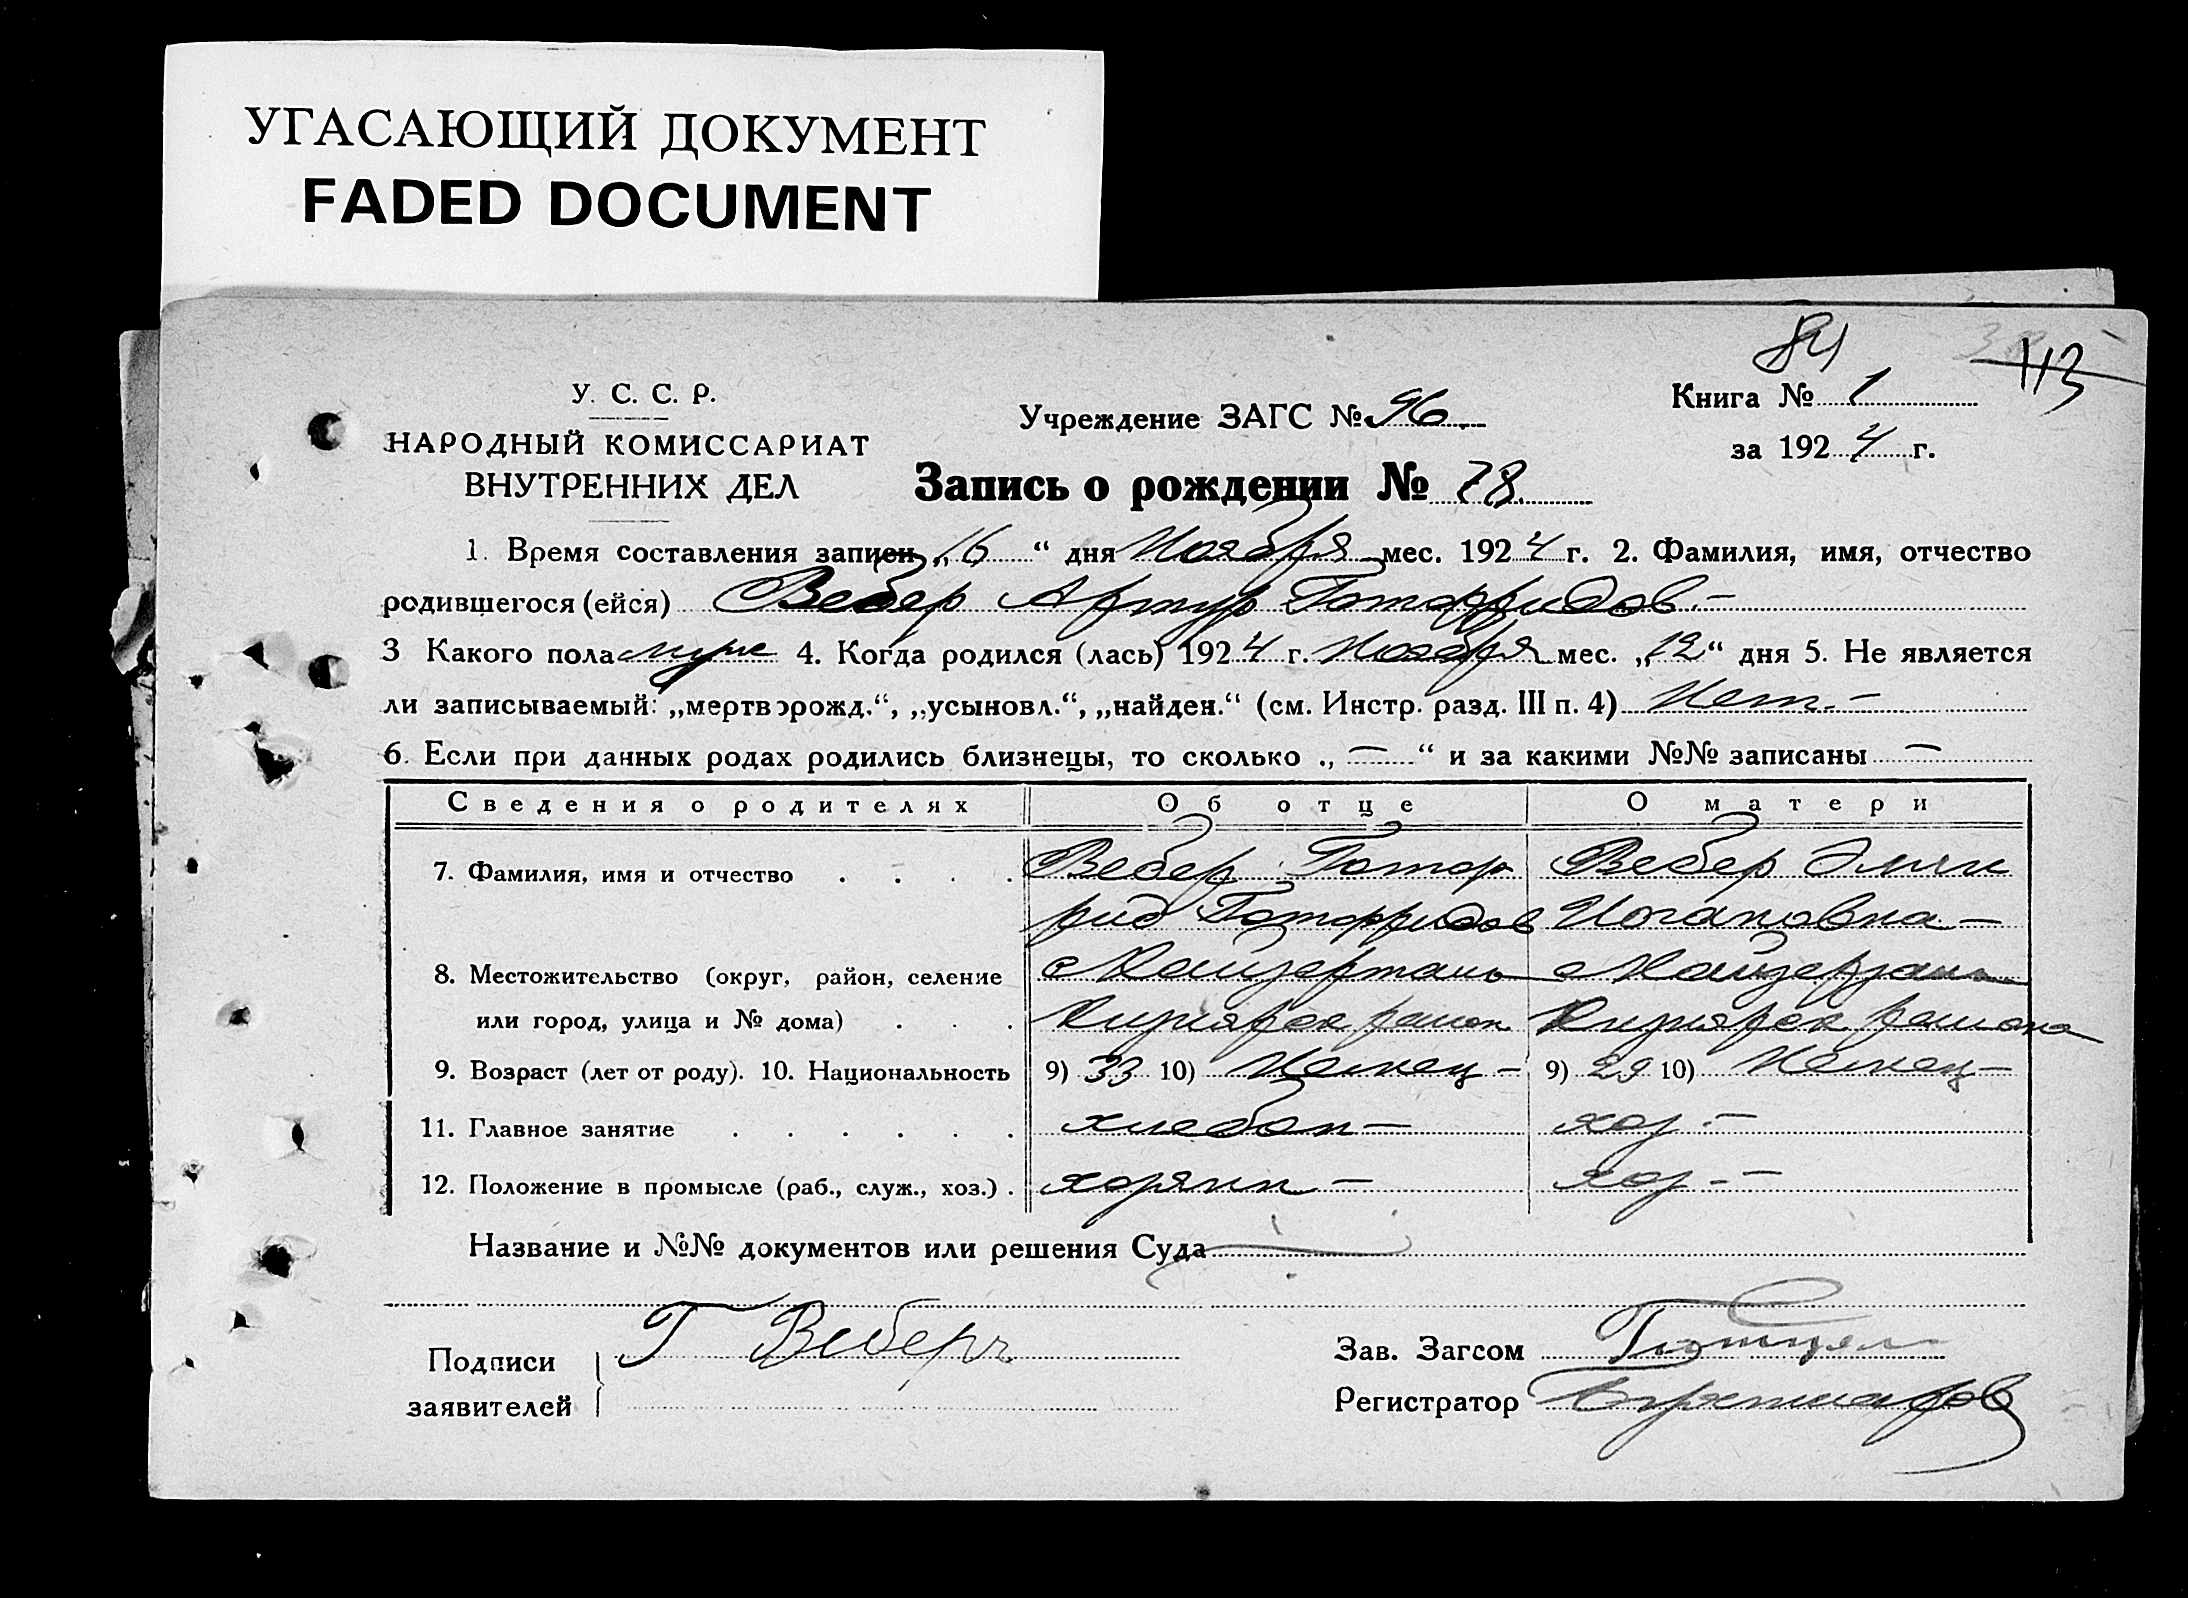 УГАСАЮЩИЙ ДОКУМЕНТ
FADED DOCUMENT
84 113
У. С. С. Р.
НАРОДНЫЙ КОМИССАРИАТ
ВНУТРЕННИХ ДЕЛ
Учреждение ЗАГС № 96.
Книга № 1
за 1924 г.
Запись о рождении № 78.
1. Время составления записи „16“ дня Ноября мес. 1924 г. 2. Фамилия, имя, отчество
родившегося (ейся) Вебер Артур Готфридов.-
3 Какого пола муж 4. Когда родился (лась) 1924 г. Ноября мес. „12“ дня 5. Не является
ли записываемый: „мертворожд.“, „усыновл.“, „найден.“ (см. Инстр. разд. III п. 4) Нет.-
6. Если при данных родах родились близнецы, то сколько „—“ и за какими №№ записаны —
Сведения о родителях Об отце О матери
7. Фамилия, имя и отчество . . . . Вебер Готф Вебер Эмли
рид Готфридов Иогановна —
8. Местожительство (округ, район, селение с с
или город, улица и № дома) . . . район района
9. Возраст (лет от роду). 10. Национальность 9) 33 10) Немец - 9) 29 10) Немец -
11. Главное занятие . . . . . . хлебоп — хоз. —
12. Положение в промысле (раб., служ., хоз.) . хозяин — хоз. —
Название и №№ документов или решения Суда
Подписи
заявителей
Г Веберъ
Зав. Загсом
Регистратор